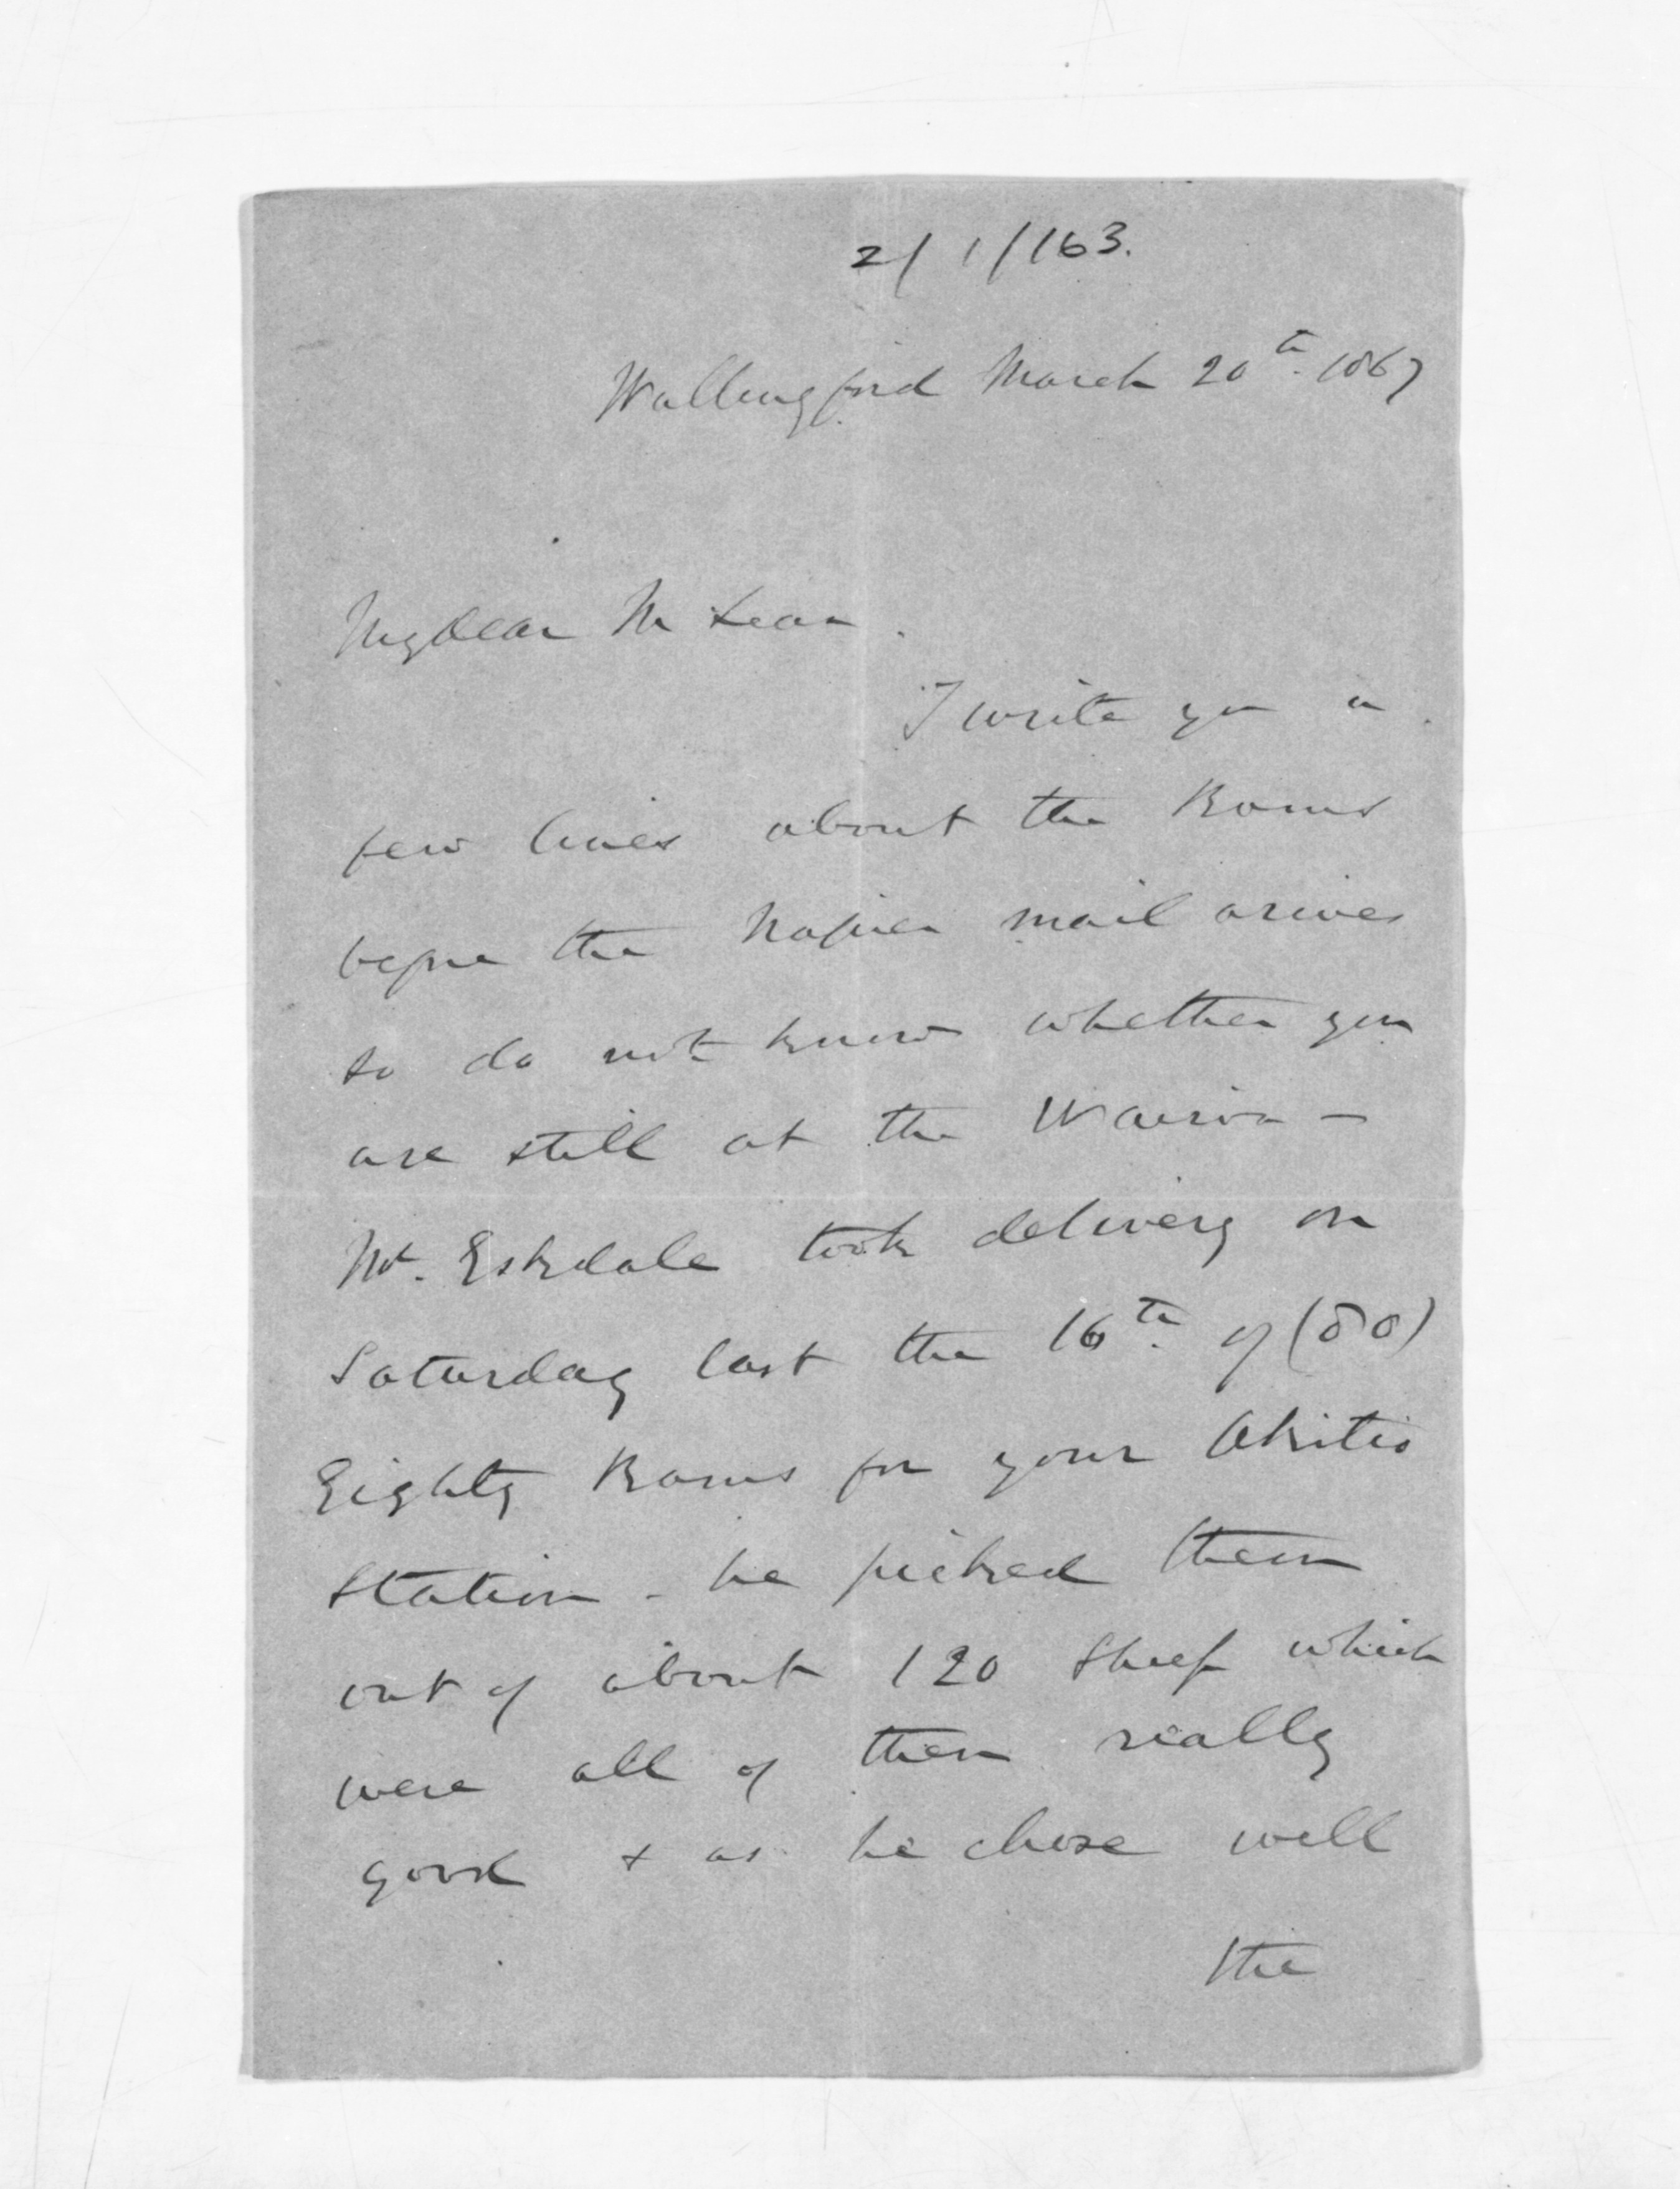 2/1/163.
Wallingford March 20th. 1867
My dear McLean.
I write you a
few lines about the Rams
before the Napier mail arives
so do not know whether you
are still at the Wairoa -
Mr. Eskdale took delivery on
Saturday last the 16th. of (80)
Eighty Rams for your Akitio
Station - he picked them
out of about 120 Sheep which
were all of them really
good & as he chose well
the